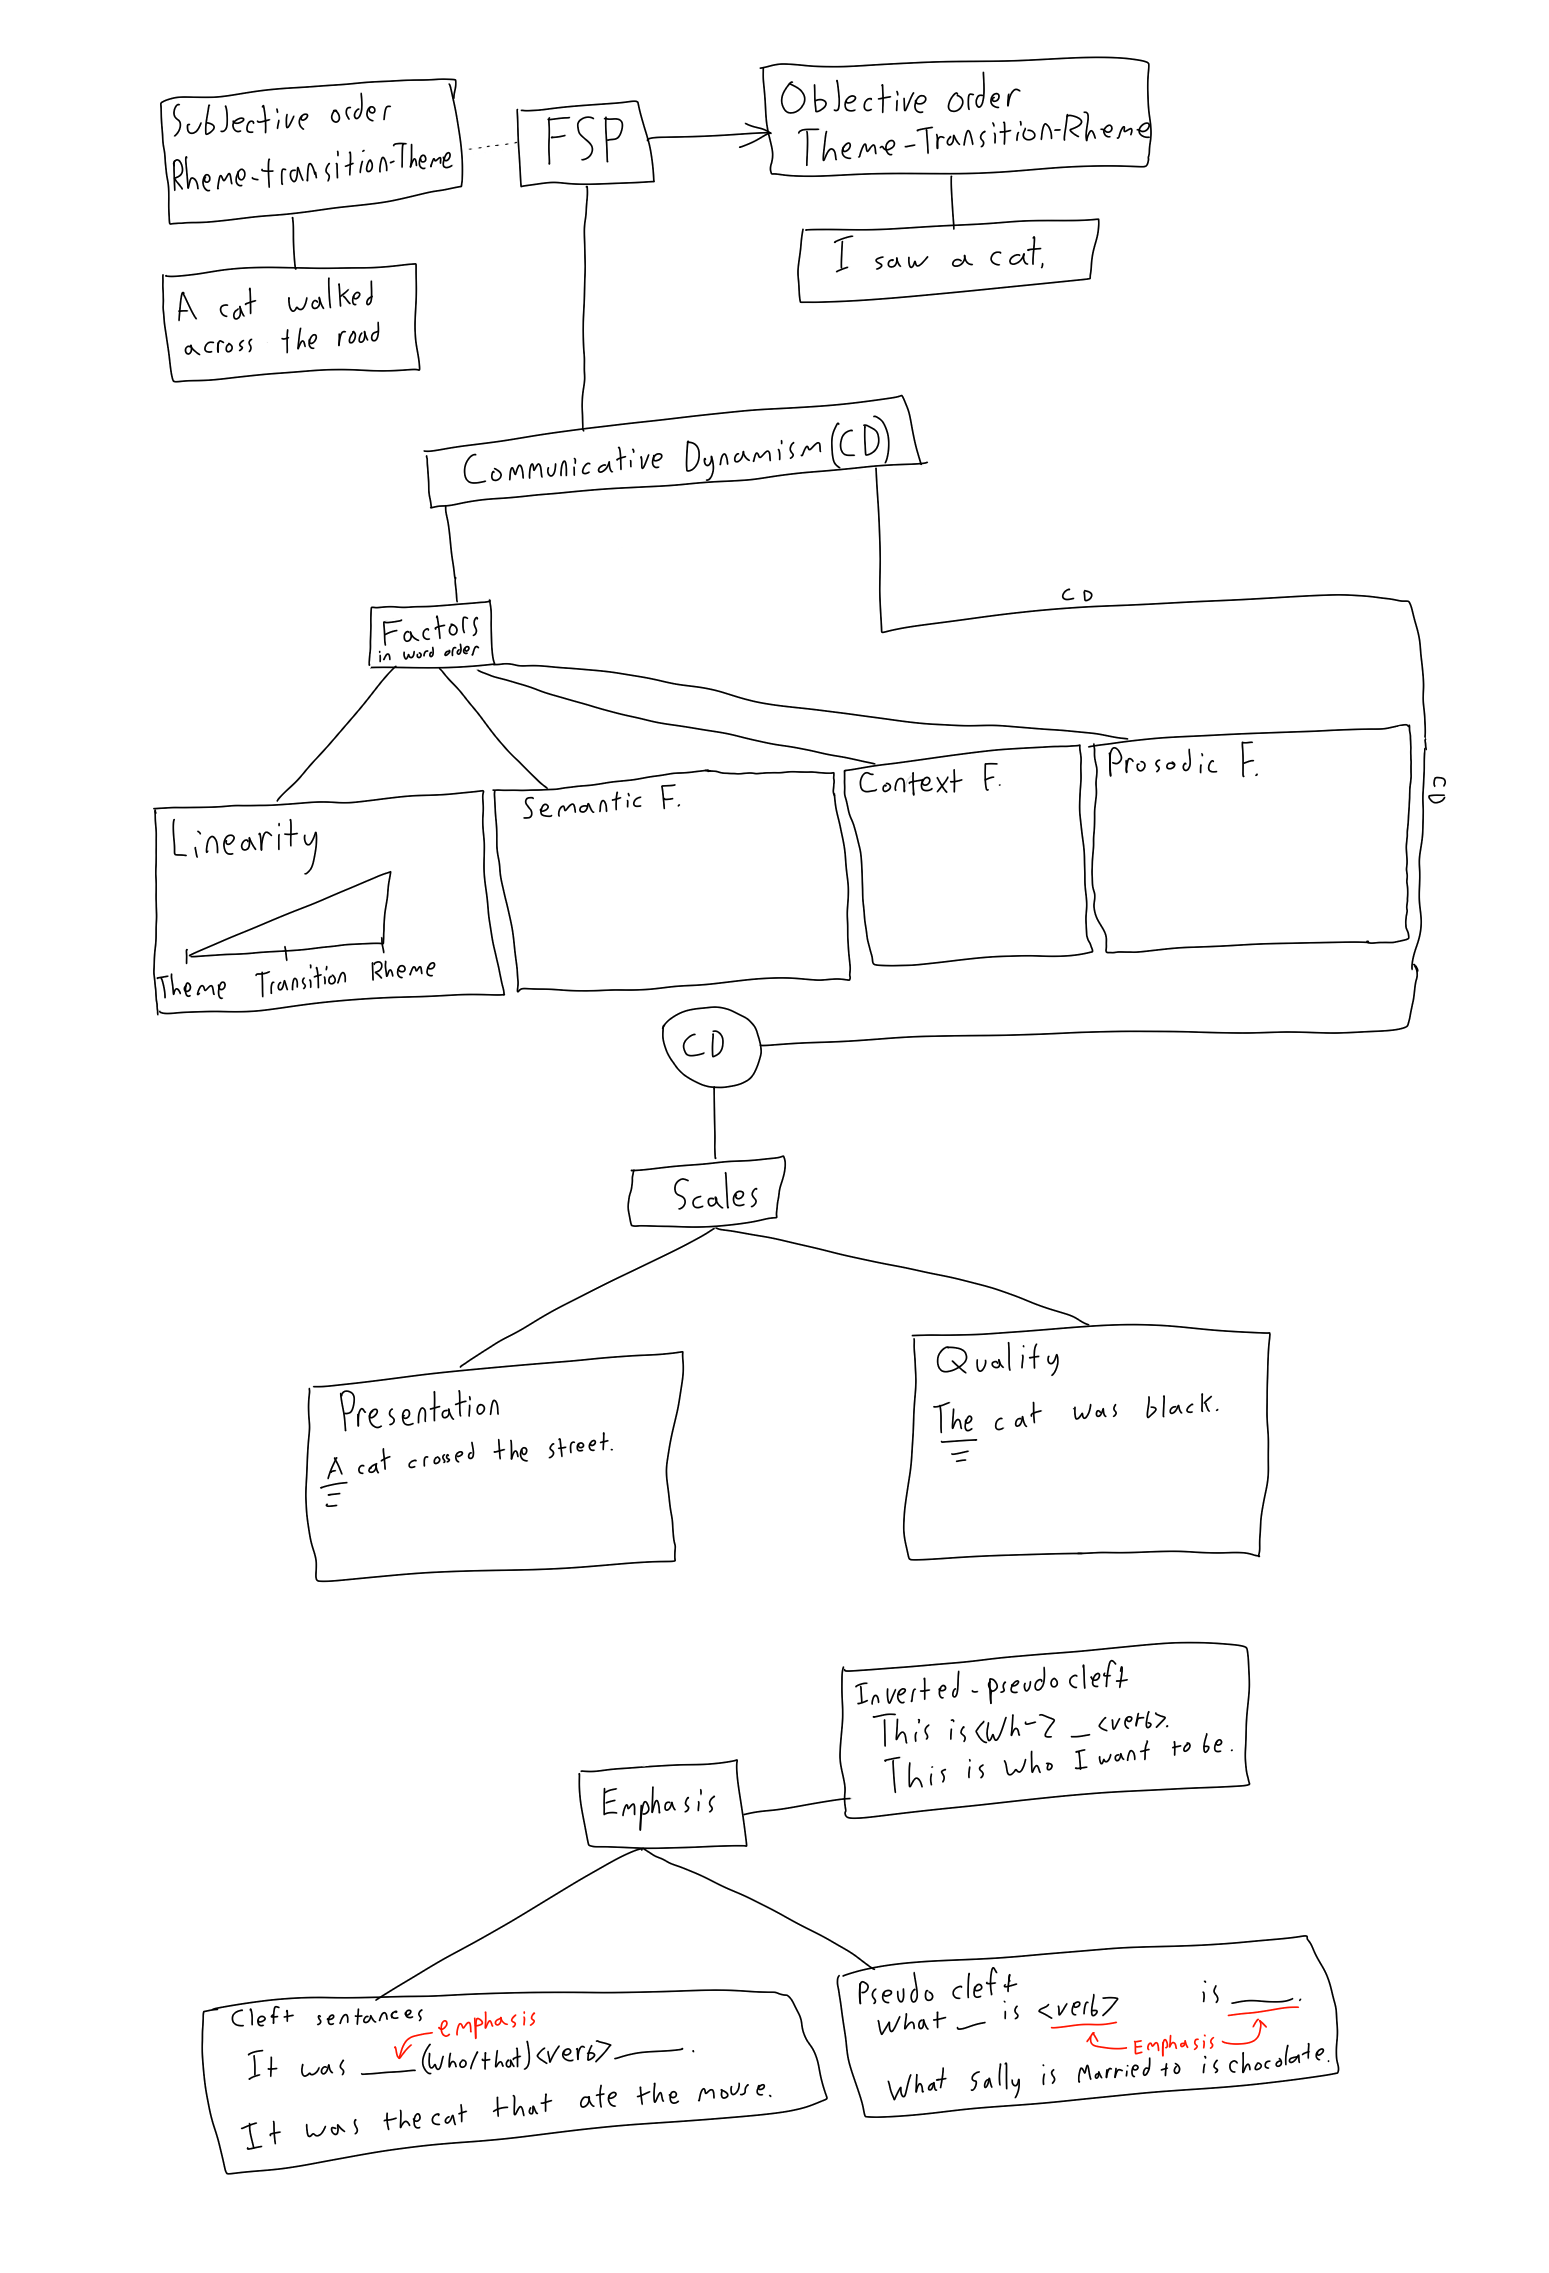 Subjective order
Rheme-transition-Theme
FSP
Objective order
Theme-Transition-Rheme
I saw a cat.
A cat walked
across the road
Communicative Dynamism (CD)
CD
Factors
in word order
CD
Linearity
Theme Transition Rheme
Semantic F.
Context F.
Prosodic F.
CD
Scales
Presentation
A cat crossed the street.
Quality
The cat was black.
Inverted-pseudo cleft
This is <Wh-> _ <verb>.
This is who I want to be.
Emphasis
Cleft sentances
emphasis
It was ____ (who/that) <verb> ____.
It was the cat that ate the mouse.
Pseudo cleft
What _ is <verb> is ____.
Emphasis
What Sally is Married to is chocolate.